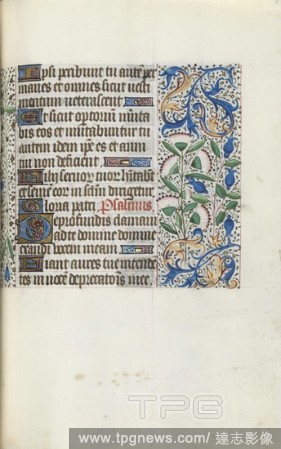 Ipsi peribunt tu aute per
manes et omnes sicut vesti
mentum veterascent
Et sicut optoriu muta
bis eos et mutabuntur tu
autem idem ipse es et anni
tui non deficient
Filij servor tuor hitabut
et seme eor in sclm dirigetur
Gloria patri Psalmus
De profundis clamavi
ad te domine domine
exaudi vocem meam
Fiant aures tue intende
tes in vocem deprecatois mee
TPG
www.tpgnews.com/ 達志影像